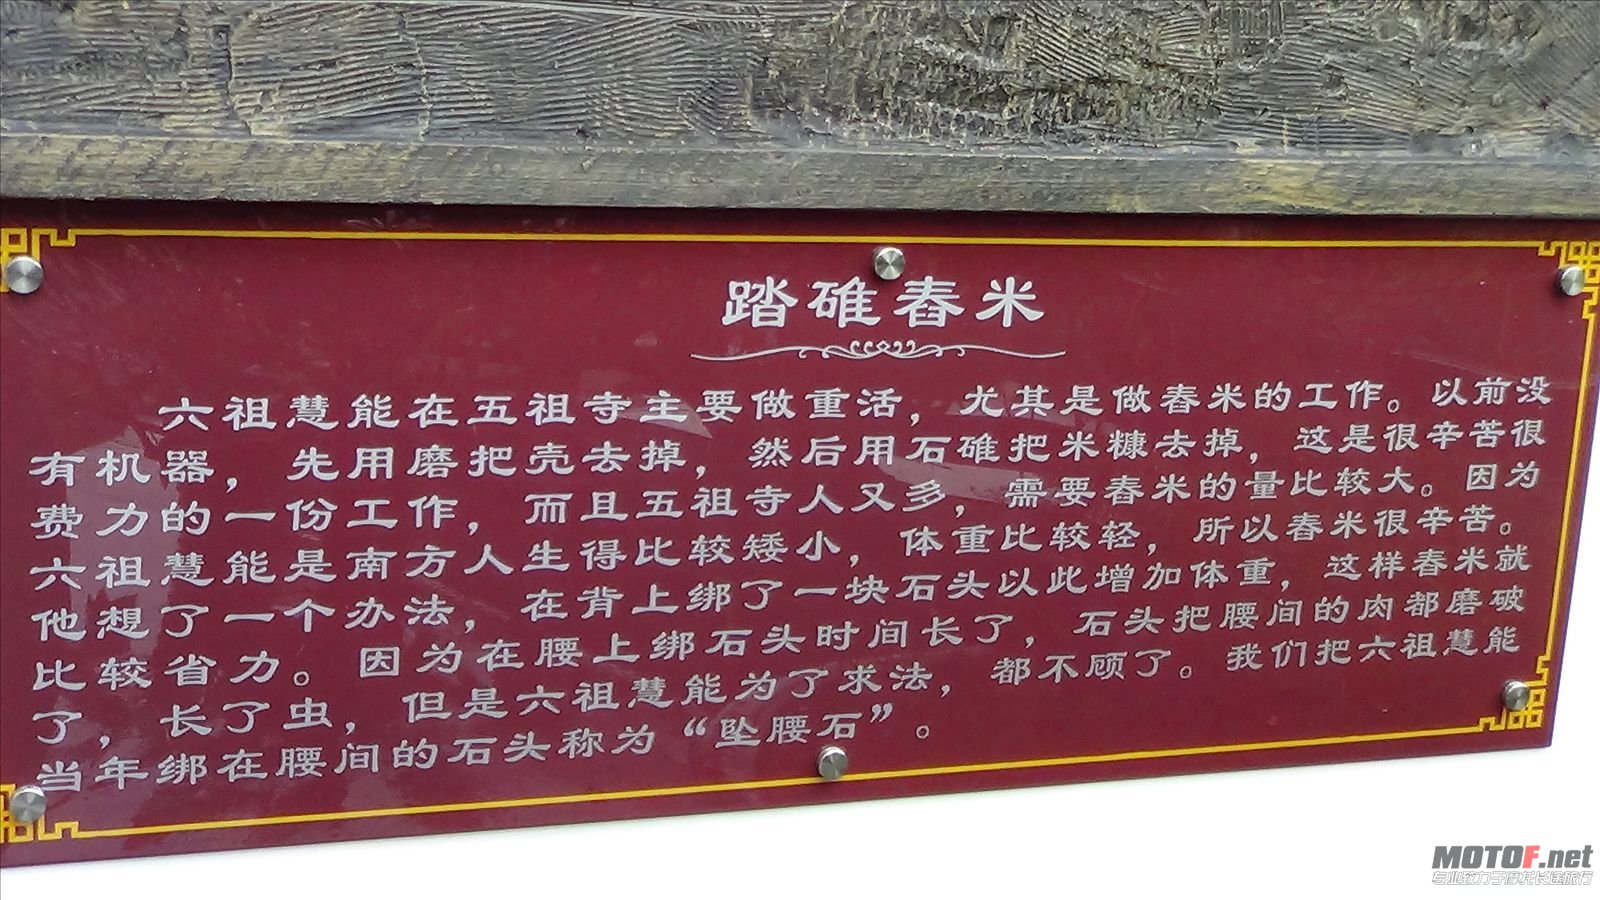 踏碓舂米
六祖慧能在五祖寺主要做重活，尤其是做舂米的工作。以前没
有机器，先用磨把壳去掉，然后用石碓把米糠去掉，这是很辛苦很
费力的一份工作，而且五祖寺人又多，需要舂米的量比较大。因为
六祖慧能是南方人生得比较矮小，体重比较轻，所以舂米很辛苦。
他想了一个办法，在背上绑了一块石头以此增加体重，这样舂米就
比较省力。因为在腰上绑石头时间长了，石头把腰间的肉都磨破
了，长了虫，但是六祖慧能为了求法，都不顾了。我们把六祖慧能
当年绑在腰间的石头称为“坠腰石”。
MOTOF.net
专业致力于摩托长途旅行